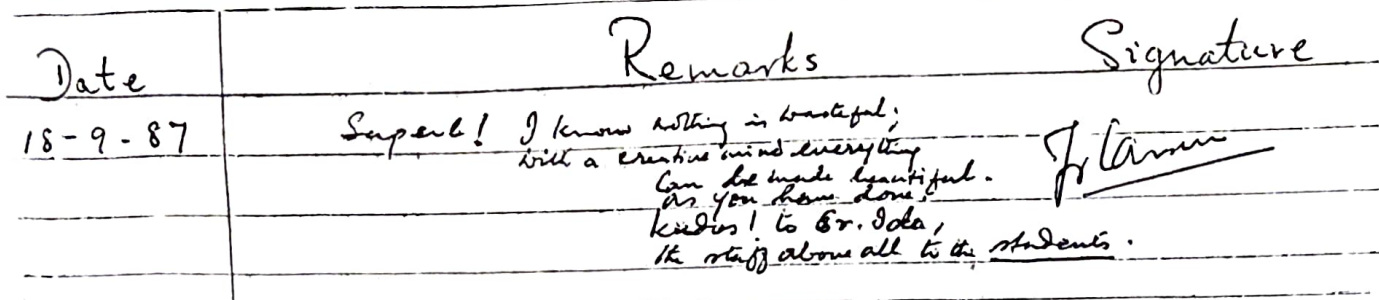 Date Remarks Signature
18-9-87 Superb! I know nothing is wasteful;
with a creative mind everything
can be made beautiful.
as you have done!
kudos! to Sr. Ida,
the staff above all to the students.